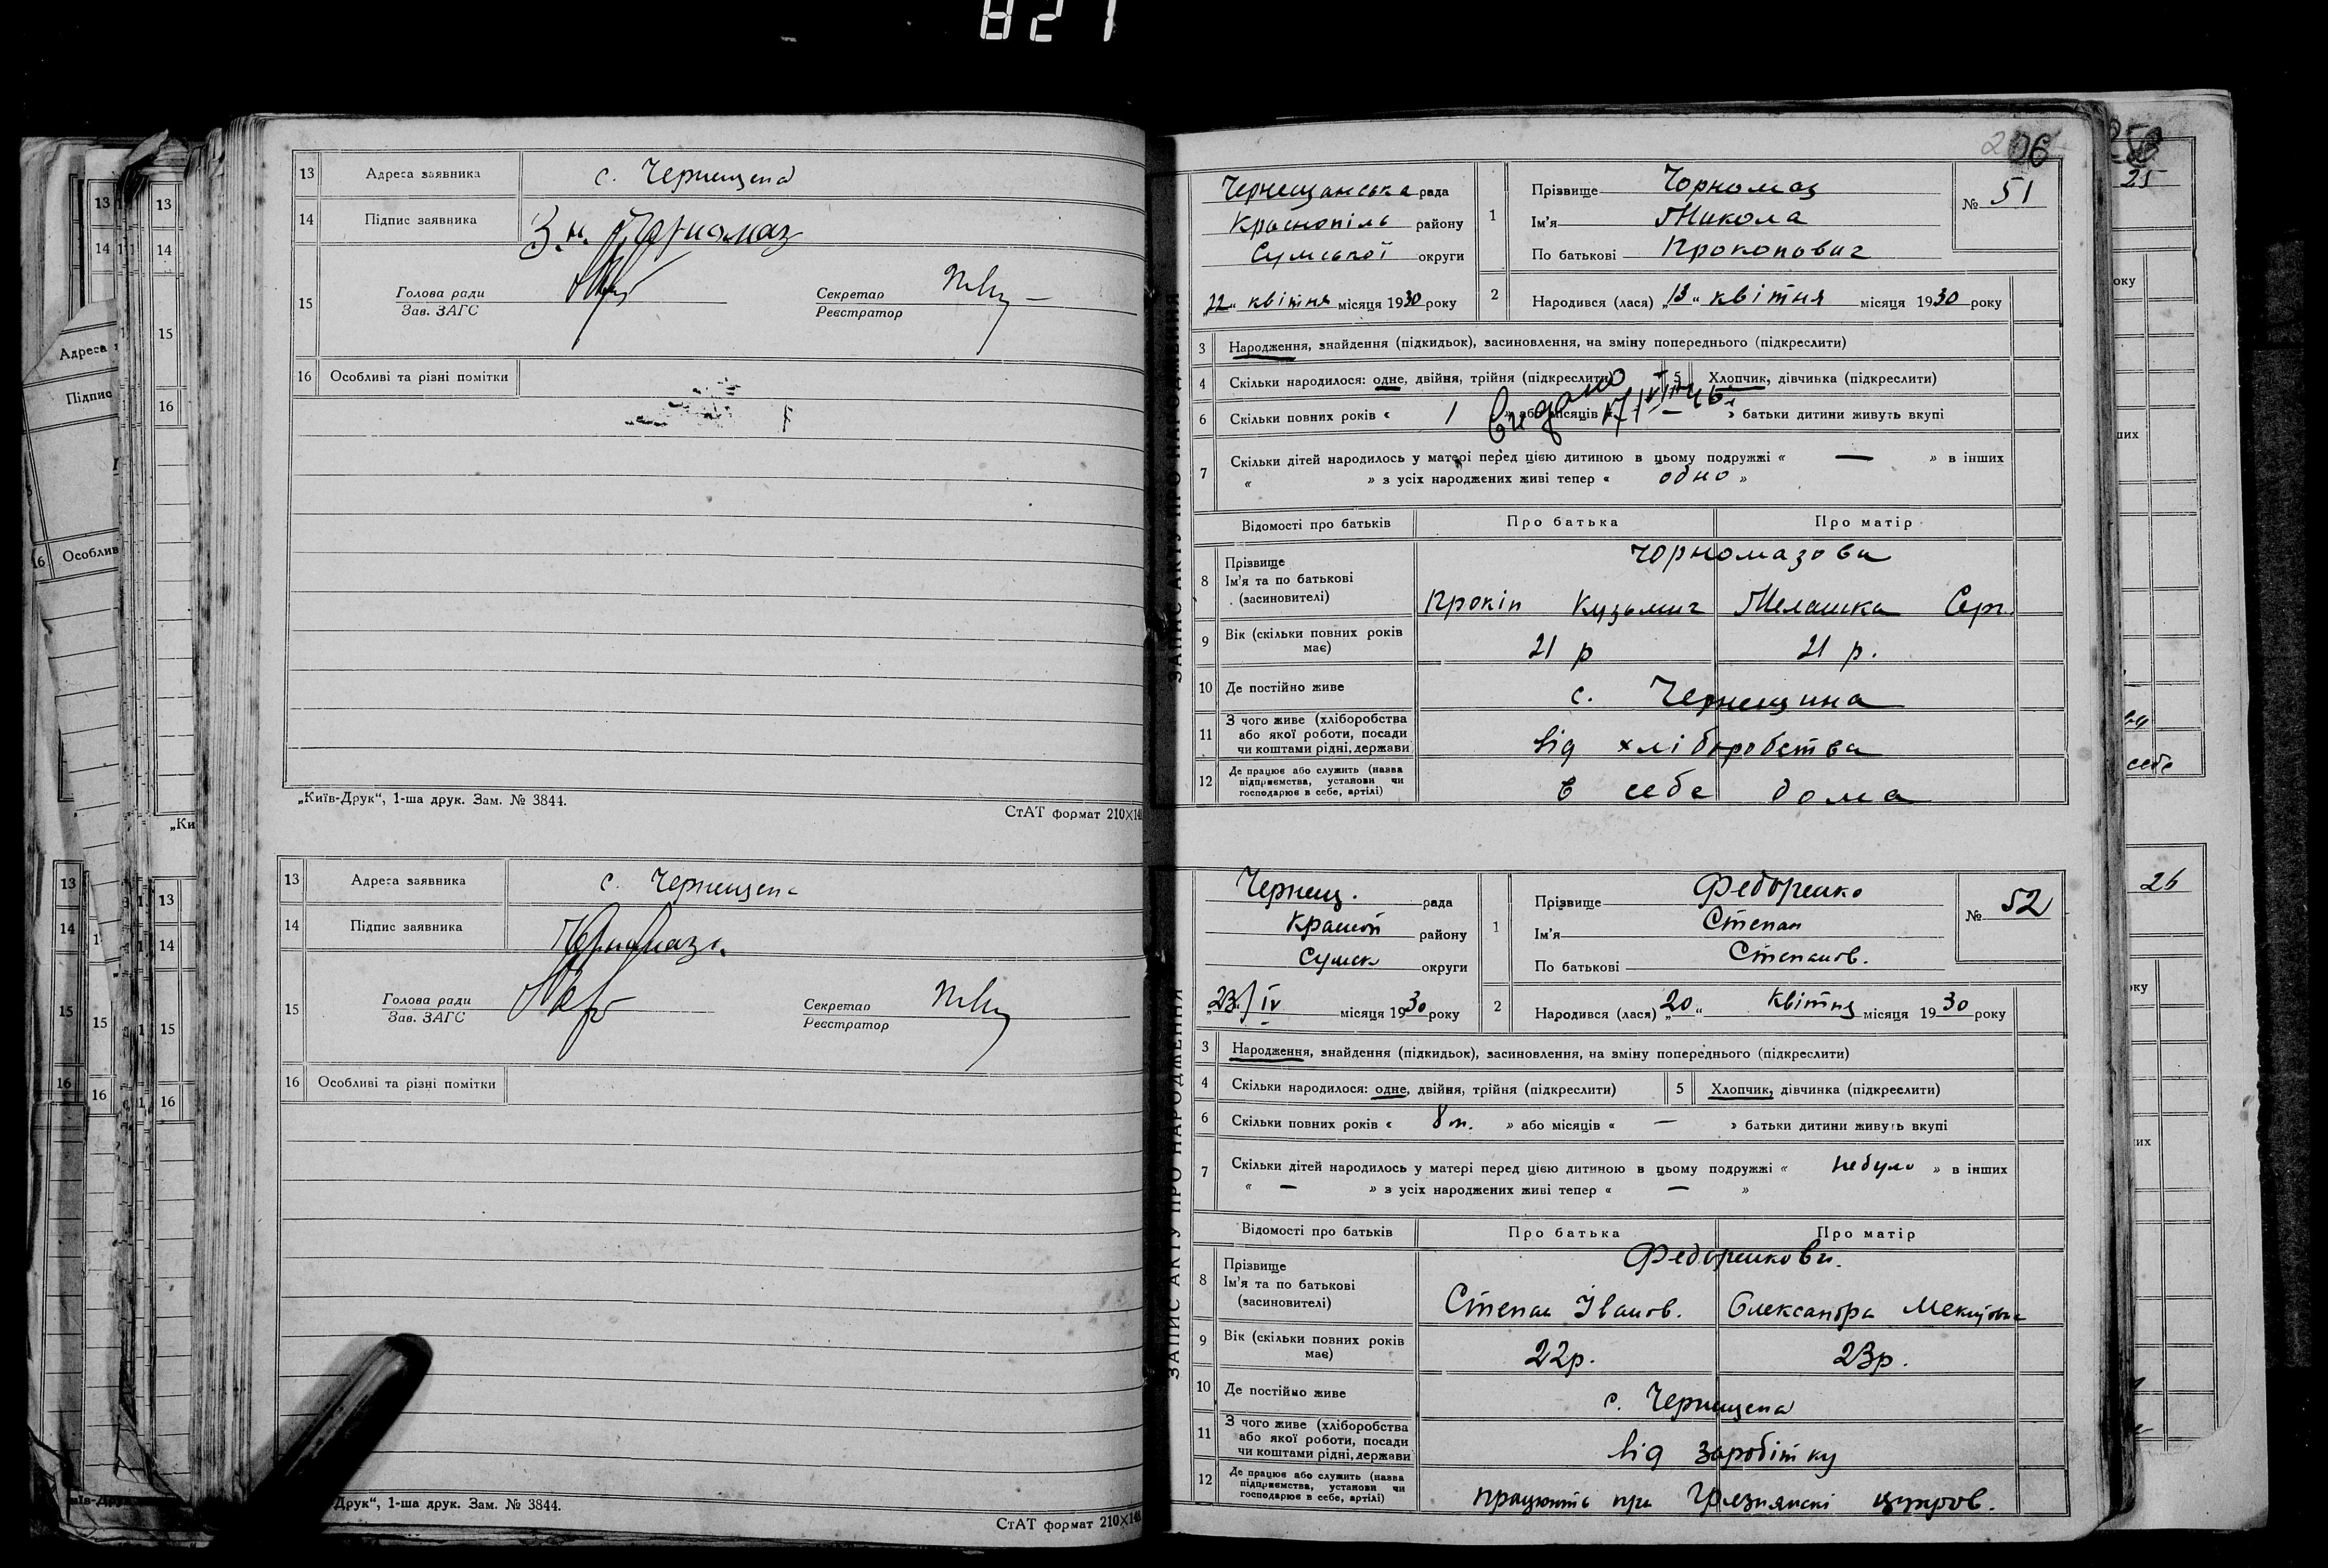 821
13 Адреса заявника с. Чернещена
14 Підпис заявника З.н. Чорномаз
15 Голова ради Секретар
Зав. ЗАГС Реєстратор
16 Особливі та різні помітки
„Київ-Друк“, 1-ша друк. Зам. № 3844.
СтАТ формат 210×14
13 Адреса заявника с. Чернещена
14 Підпис заявника
15 Голова ради Секретар
Зав. ЗАГС Реєстратор
16 Особливі та різні помітки
Друк“, 1-ша друк. Зам. № 3844.
СтАТ формат 210×14
206
ЗАПИС АКТУ ПРО НАРОДЖЕННЯ
Чернещанська рада
Краснопіль району
Сумської округи
„22“ квітня місяця 1930 року
1 Прізвище Чорномаз
Ім’я Микола
По батькові Прокопович
№ 51
2 Народився (лася) „13“ квітня місяця 1930 року
3 Народження, знайдення (підкидьок), засиновлення, на зміну попереднього (підкреслити)
4 Скільки народилося: одне, двійня, трійня (підкреслити) 5 Хлопчик, дівчинка (підкреслити)
Видано 17/VIII 46
6 Скільки повних років « 1 » або місяців « — » батьки дитини живуть вкупі
7 Скільки дітей народилось у матері перед цією дитиною в цьому подружжі « — » в інших
« » з усіх народжених живі тепер « одно »
Відомості про батьків Про батька Про матір
8 Прізвище Чорномазова
Ім’я та по батькові
(засиновителі) Прокіп Кузьмич Мелашка Серг.
9 Вік (скільки повних років має) 21 р 21 р.
10 Де постійно живе с. Чернещина
11 З чого живе (хліборобства
або якої роботи, посади
чи коштами рідні, держави від хліборобства
12 Де працює або служить (назва
підприємства, установи чи
господарює в себе, артілі) в себе дома
ЗАПИС АКТУ ПРО НАРОДЖЕННЯ
Чернещ. рада
Красноп району
Сумск округи
„23“/IV місяця 1930 року
1 Прізвище Федоренко
Ім’я Степан
По батькові Степанов.
№ 52
2 Народився (лася) „20“ квітня місяця 1930 року
3 Народження, знайдення (підкидьок), засиновлення, на зміну попереднього (підкреслити)
4 Скільки народилося: одне, двійня, трійня (підкреслити) 5 Хлопчик, дівчинка (підкреслити)
6 Скільки повних років « 8 м. » або місяців « — » батьки дитини живуть вкупі
7 Скільки дітей народилось у матері перед цією дитиною в цьому подружжі « небуло » в інших
« — » з усіх народжених живі тепер « — »
Відомості про батьків Про батька Про матір
8 Прізвище Федоренкови.
Ім’я та по батькові
(засиновителі) Степан Іванов. Олександра
9 Вік (скільки повних років має) 22р. 23р.
10 Де постійно живе с. Чернещена
11 З чого живе (хліборобства
або якої роботи, посади
чи коштами рідні, держави від заробітку
12 Де працює або служить (назва
підприємства, установи чи
господарює в себе, артілі) працюють при цукров.
25
26